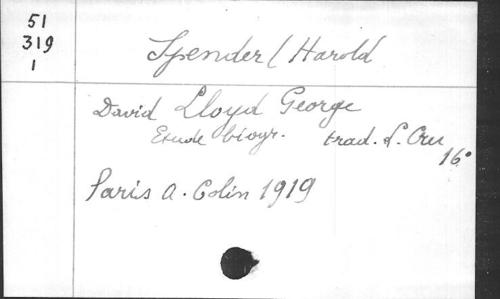 51
319
1
Spender / Harold
David Lloyd George
Etude biogr. trad. L. Cru
16°
Paris A. Colin 1919